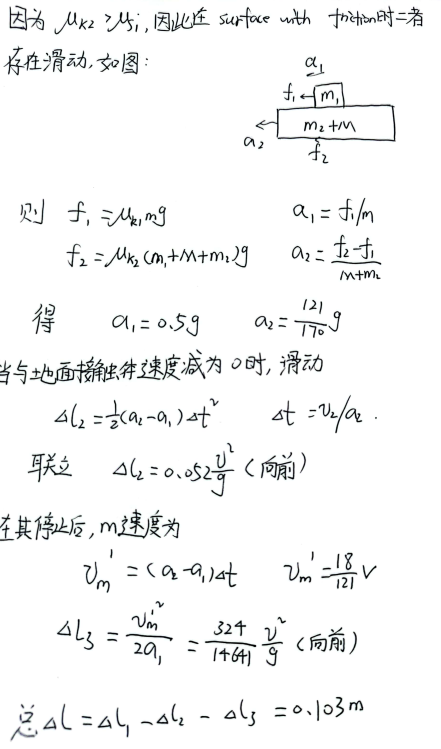 因为 μk2 > μs1, 因此在 surface with friction时二者
存在滑动, 如图:
a1
f1 ← m1
m2+M
a2
f2
则 f1 = μk1 mg a1 = f1/m
f2 = μk2 (m1+M+m2)g a2 = (f2-f1)/(M+m2)
得 a1 = 0.5g a2 = 121/170 g
当与地面接触体速度减为0时, 滑动
Δl2 = 1/2 (a2-a1)Δt² Δt = v2/a2 .
联立 Δl2 = 0.052 v²/g (向前)
在其停止后, m速度为
vm' = (a2-a1)Δt vm' = 18/121 v
Δl3 = vm'²/2a1 = 324/14641 v²/g (向前)
总 Δl = Δl1 - Δl2 - Δl3 = 0.103m